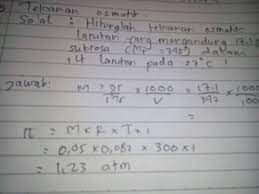 Tekanan osmotik
Soal : Hitunglah tekanan osmotik
larutan yang mengandung 17,1
sukrosa (Mr = 342) dalam
1 L larutan pada 27°C !
Jawab: M = gr/Mr × 1000/V = 17,1/342 × 1000/
=
π = M × R × T × i
= 0,05 × 0,082 × 300 × 1
= 1,23 atm